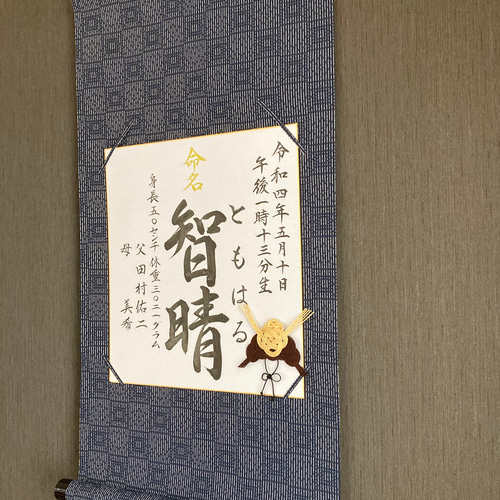 令和四年五月十日
午後一時十三分生
ともはる
命名
智晴
身長五〇センチ 体重三〇二一グラム
父 田村佑二
母 美希